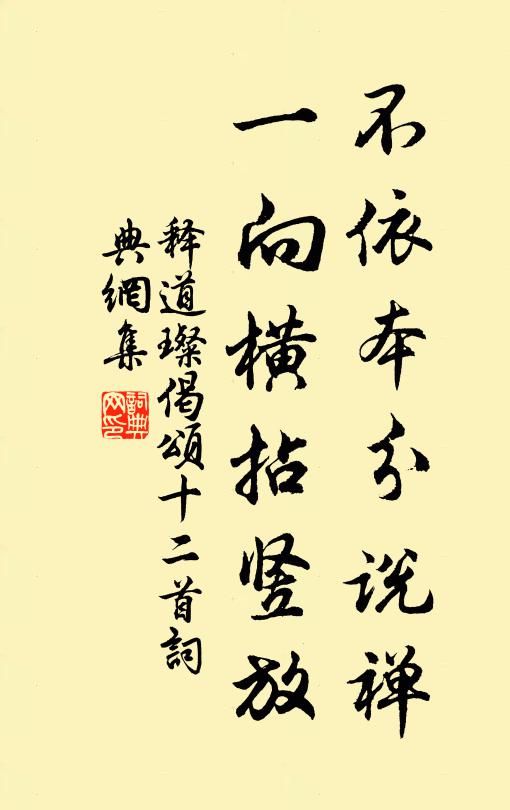 不依本分说禅
一向横拈竖放
释道璨偈颂十二首詞
典網集
詞典网印